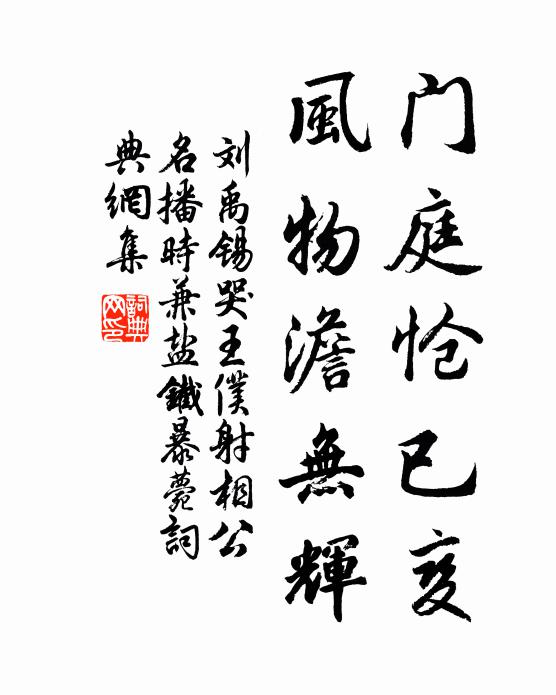 门庭怆已变
風物澹無輝
刘禹锡哭王僕射相公
名播時兼盐鐵暴薨詞
典網集
詞典网印